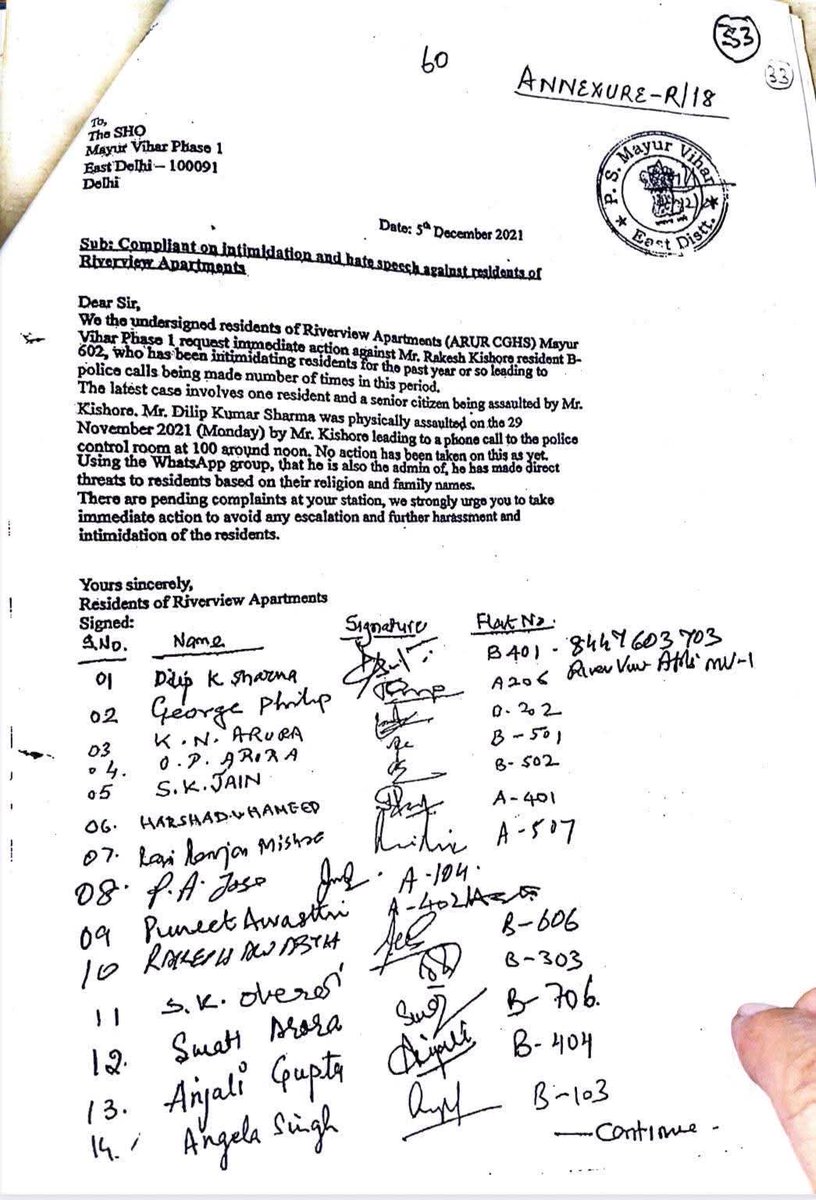 60
53
33
ANNEXURE-R/18
To,
The SHO
Mayur Vihar Phase 1
East Delhi – 100091
Delhi
P. S. Mayur Vihar
East Distt.
Date: 5th December 2021
Sub: Compliant on intimidation and hate speech against residents of
Riverview Apartments
Dear Sir,
We the undersigned residents of Riverview Apartments (ARUR CGHS) Mayur
Vihar Phase 1 request immediate action against Mr. Rakesh Kishore resident B-
602, who has been intimidating residents for the past year or so leading to
police calls being made number of times in this period.
The latest case involves one resident and a senior citizen being assaulted by Mr.
Kishore. Mr. Dilip Kumar Sharma was physically assaulted on the 29
November 2021 (Monday) by Mr. Kishore leading to a phone call to the police
control room at 100 around noon. No action has been taken on this as yet.
Using the WhatsApp group, that he is also the admin of, he has made direct
threats to residents based on their religion and family names.
There are pending complaints at your station, we strongly urge you to take
immediate action to avoid any escalation and further harassment and
intimidation of the residents.
Yours sincerely,
Residents of Riverview Apartments
Signed:
S.No. Name Signature Flat No.
01 Dilip K Sharma B401 - 8447603703
02 George Philip A206
03 K.N. ARORA 202
04. O.P. ARORA B-501
05 S.K. JAIN B-502
06. A-401
07. Ravi Ranjan Mishra A-507
08. P.A. Jose A-104.
09 Puneet Awasthi A-402
10 B-606
11 S.K. Oberoi B-303
12. Swati Arora B-706.
13. Anjali Gupta Anjali B-404
14. Angela Singh B-103
Continue -